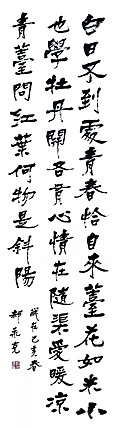 白日不到處青春恰自來薹花如米小
也學牡丹開各有心情在隨渠愛暖涼
青薹問紅葉何物是斜陽
歲在己亥春
郝